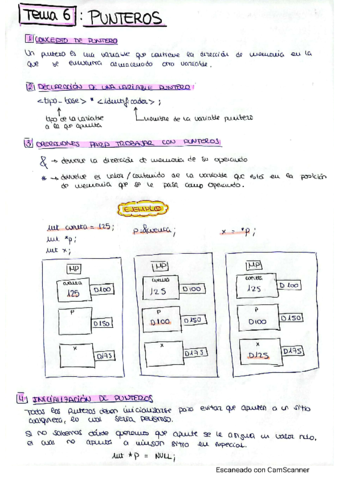 Tema 6: PUNTEROS
1 CONCEPTO DE PUNTERO
Un puntero es una variable que contiene la dirección de memoria en la
que se encuentra almacenado otra variable.
2 DECLARACIÓN DE UNA VARIABLE PUNTERO:
<tipo-base> * <identificador>;
tipo de la variable
a la que apunta
nombre de la variable puntero
3 OPERACIONES PARA TRABAJAR CON PUNTEROS:
& → devuelve la dirección de memoria de su operando
* → devuelve el valor/contenido de la variable que está en la posición
de memoria que se le pasa como operando.
EJEMPLO
int cuenta = 125;
int *p;
int x;
p = &cuenta;
x = *p;
MP
cuenta
125
D100
P
D150
x
D175
MP
cuenta
125
D100
P
D100
D150
x
D175
MP
cuenta
125
D100
P
D100
D150
x
D125
D175
4 INICIALIZACIÓN DE PUNTEROS
Todos los punteros deben inicializarse para evitar que apunten a un sitio
cualquiera, lo cual sería peligroso.
Si no sabemos dónde queremos que apunte se le asigna un valor nulo,
el cual no apunta a ningún sitio en especial.
int *P = NULL;
Escaneado con CamScanner